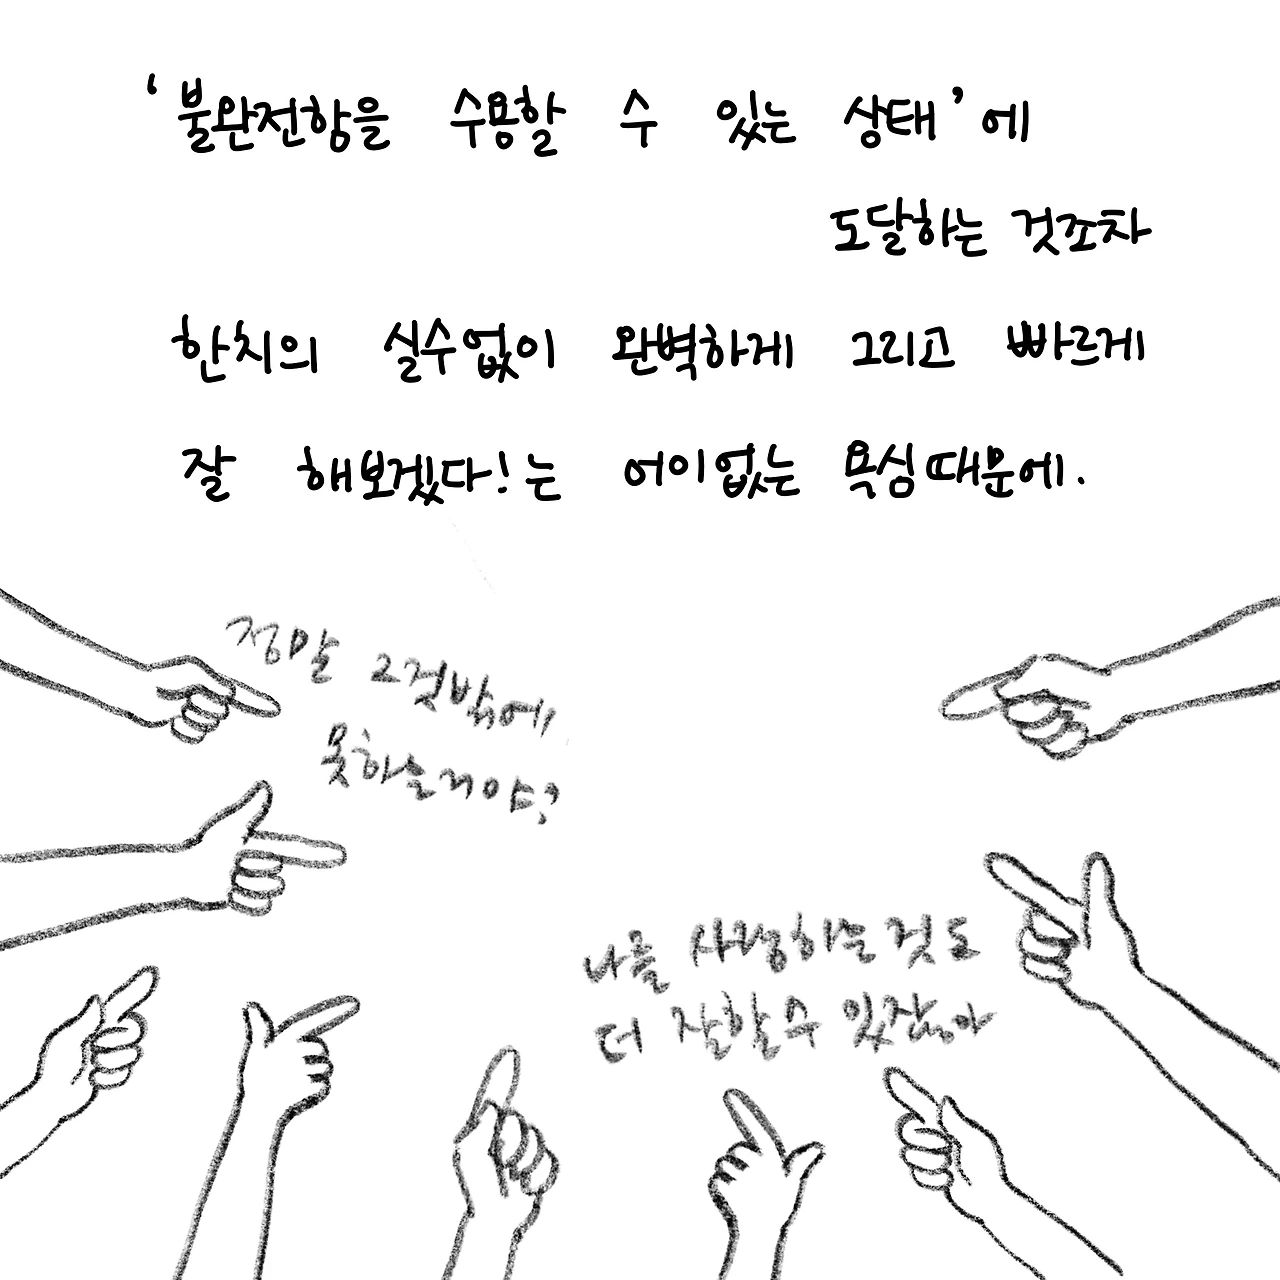 ‘불완전함을 수용할 수 있는 상태’에
도달하는 것조차
한치의 실수없이 완벽하게 그리고 빠르게
잘 해보겠다!는 어이없는 욕심때문에.
정말 그것밖에
못하는거야?
나를 사랑하는것도
더 잘할수 있잖아